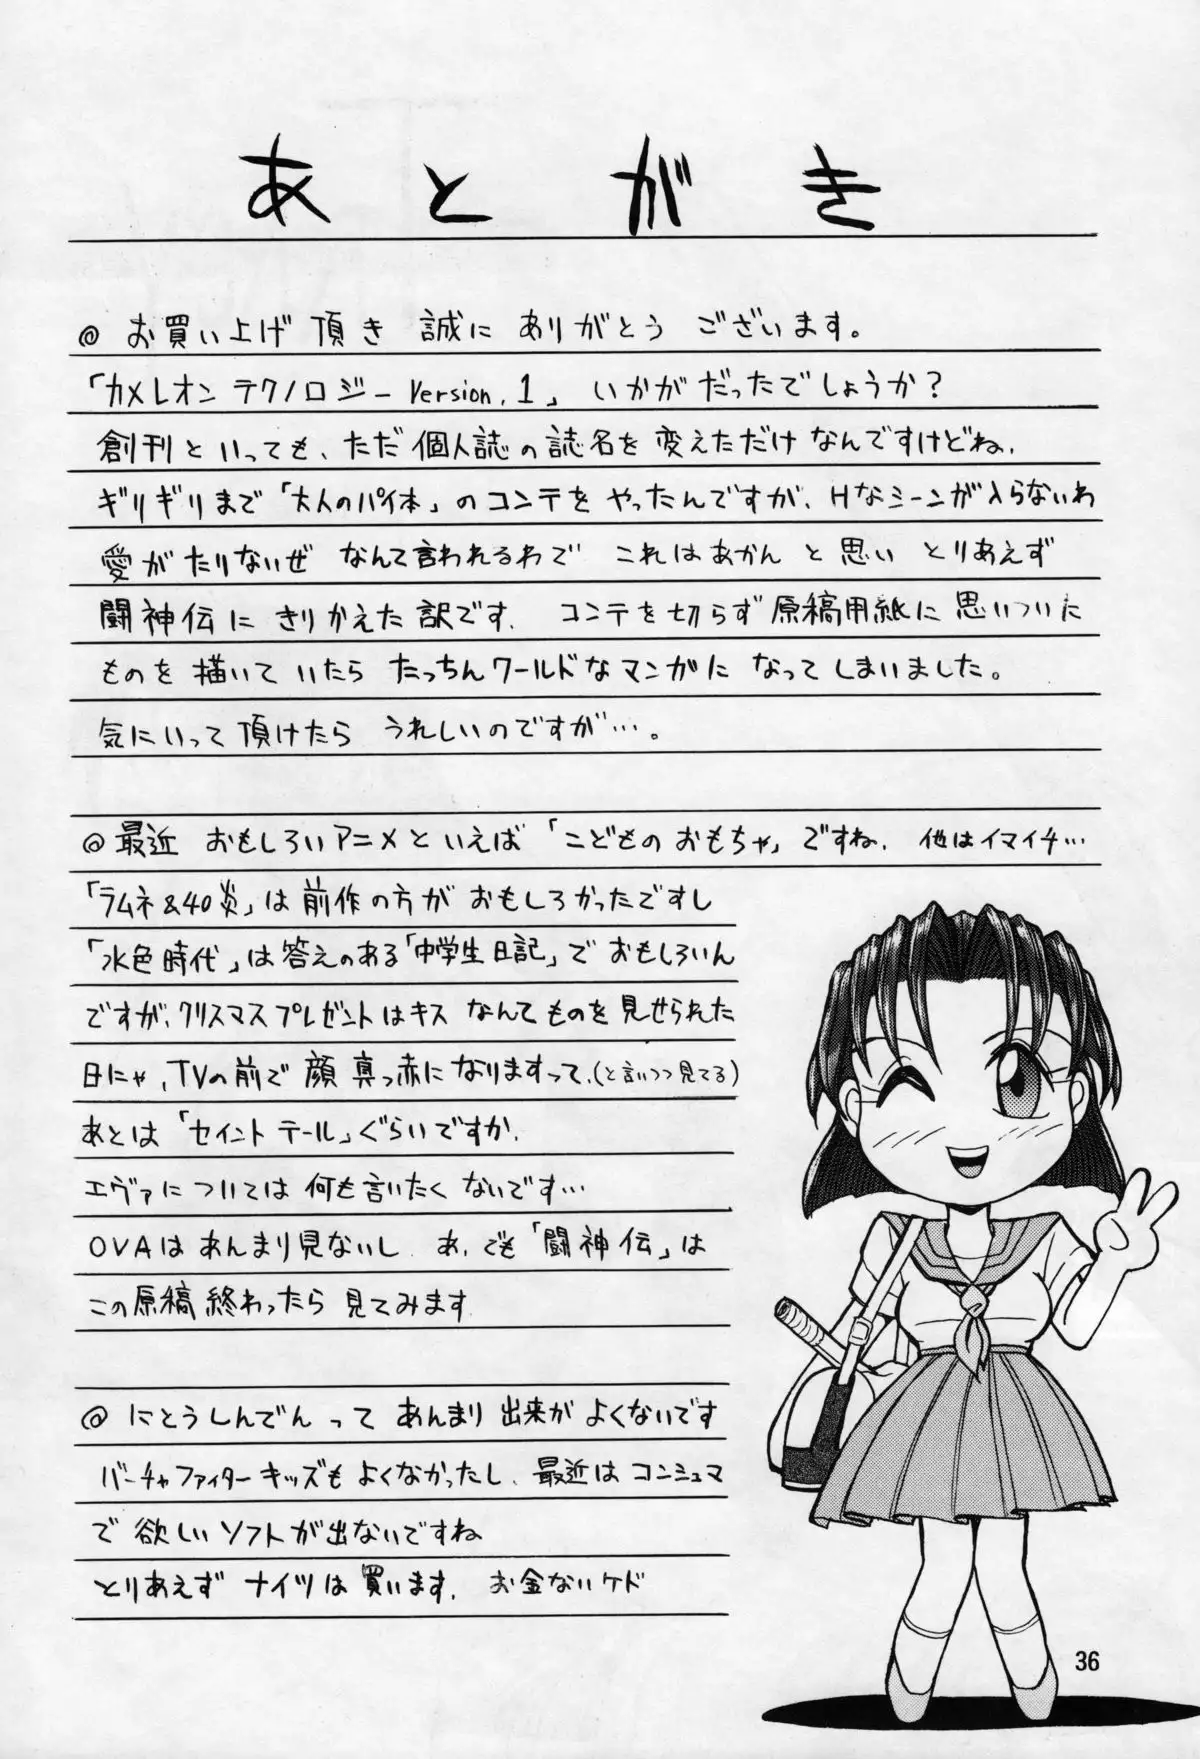 あとがき
@ お買い上げ 頂き 誠に ありがとう ございます。
「カメレオン テクノロジー Version.1」 いかがだったでしょうか?
創刊といっても、ただ個人誌の誌名を変えただけなんですけどね、
ギリギリまで「大人のパイ本」のコンテをやったんですが、Hなシーンが入らないわ
愛がたりないぜ なんて言われるわで これはあかん と思い とりあえず
闘神伝に きりかえた訳です. コンテを切らず原稿用紙に思いついた
ものを描いて いたら たっちんワールドなマンガに なって しまいました。
気にいって頂けたら うれしいのですが…。
@最近 おもしろいアニメといえば「こどものおもちゃ」ですね. 他はイマイチ…
「ラムネ&40炎」は前作の方が おもしろかったですし
「水色時代」は答えのある「中学生日記」で おもしろいん
ですが、クリスマスプレゼントはキス なんてものを見せられた
日にゃ、TVの前で顔真っ赤になりますって.(と言いつつ見てる)
あとは「セイントテール」ぐらいですか.
エヴァについては 何も言いたくないです…
OVAはあんまり見ないし あ、でも「闘神伝」は
この原稿終わったら 見てみます
@ にとうしんでんって あんまり出来が よくないです
バーチャファイターキッズもよくなかったし、最近はコンシュマ
で欲しいソフトが出ないですね
とりあえず ナイツは買います. お金ないケド
36